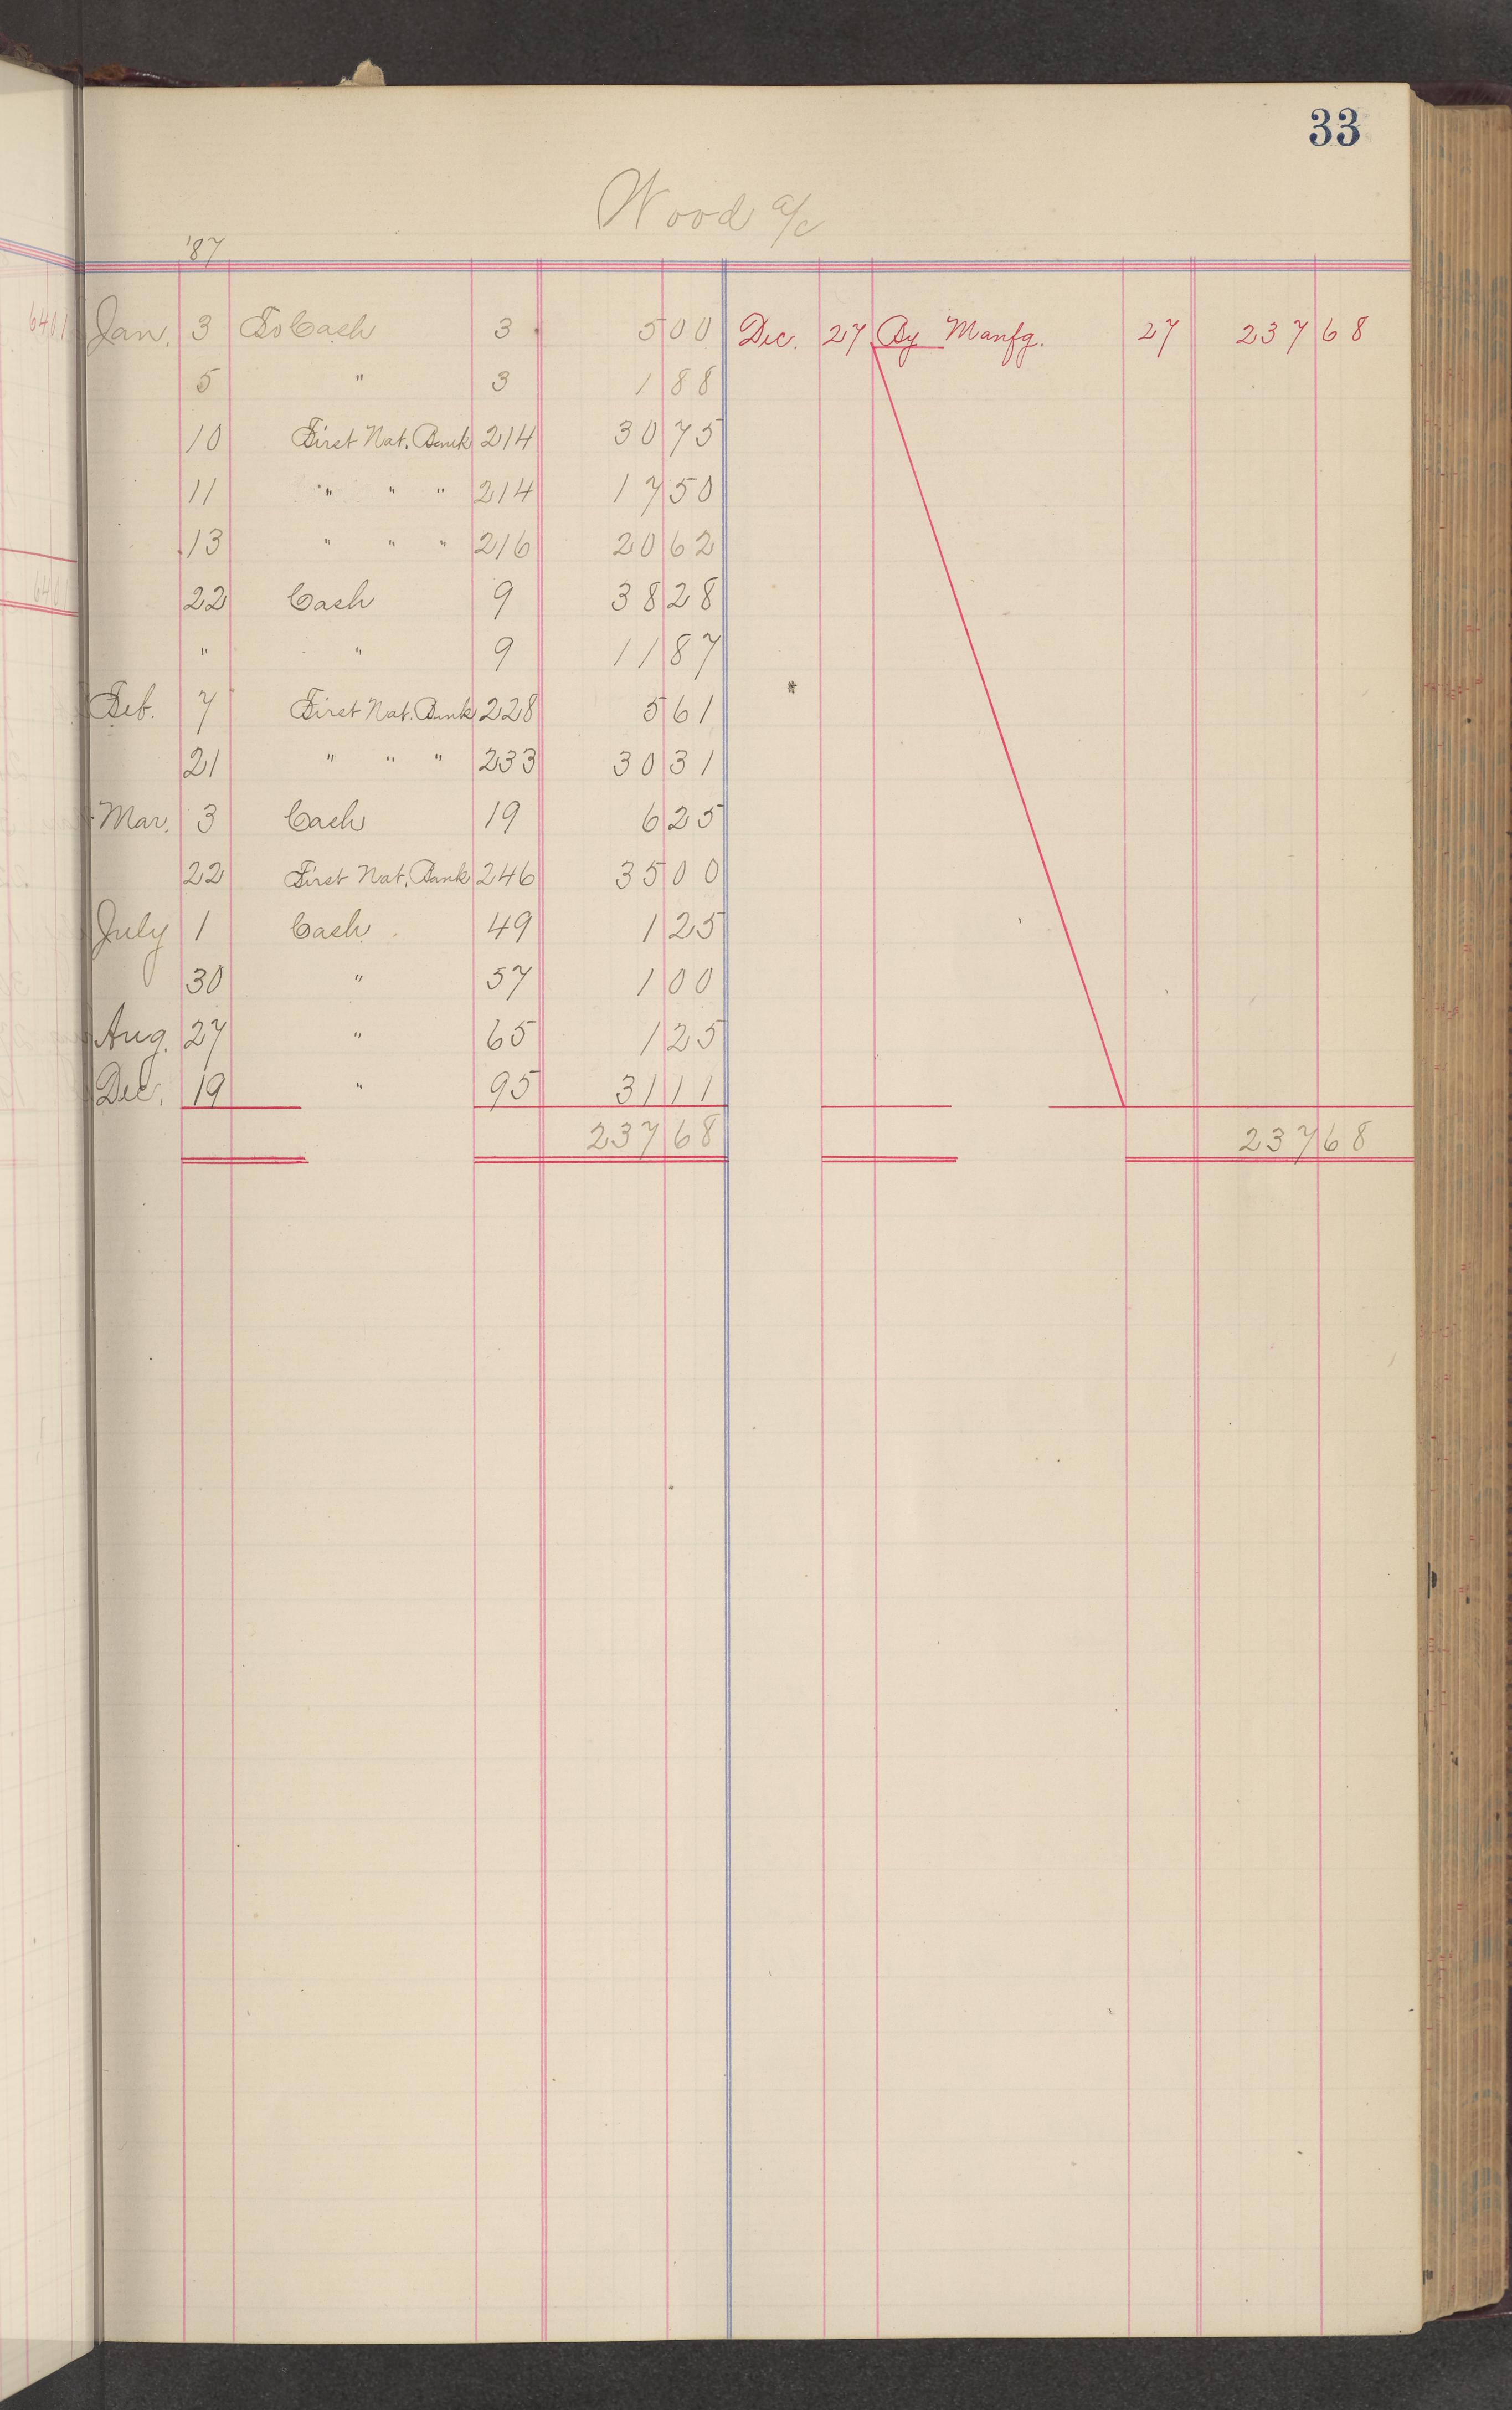 33
Wood a/c
'87
Jan. 3 To Cash 3 5 00 Dec. 27 By Manfg. 27 237 68
5 " 3 1 88
10 First Nat. Bank 214 30 75
11 " " " 214 17 50
13 " " " 216 20 62
22 Cash 9 38 28
" " 9 11 87
Feb. 7 First Nat. Bank 228 5 61
21 " " " 233 30 31
Mar. 3 Cash 19 6 25
22 First Nat. Bank 246 35 00
July 1 Cash 49 1 25
30 " 57 1 00
Aug. 27 " 65 1 25
Dec. 19 " 95 31 11
237 68 237 68